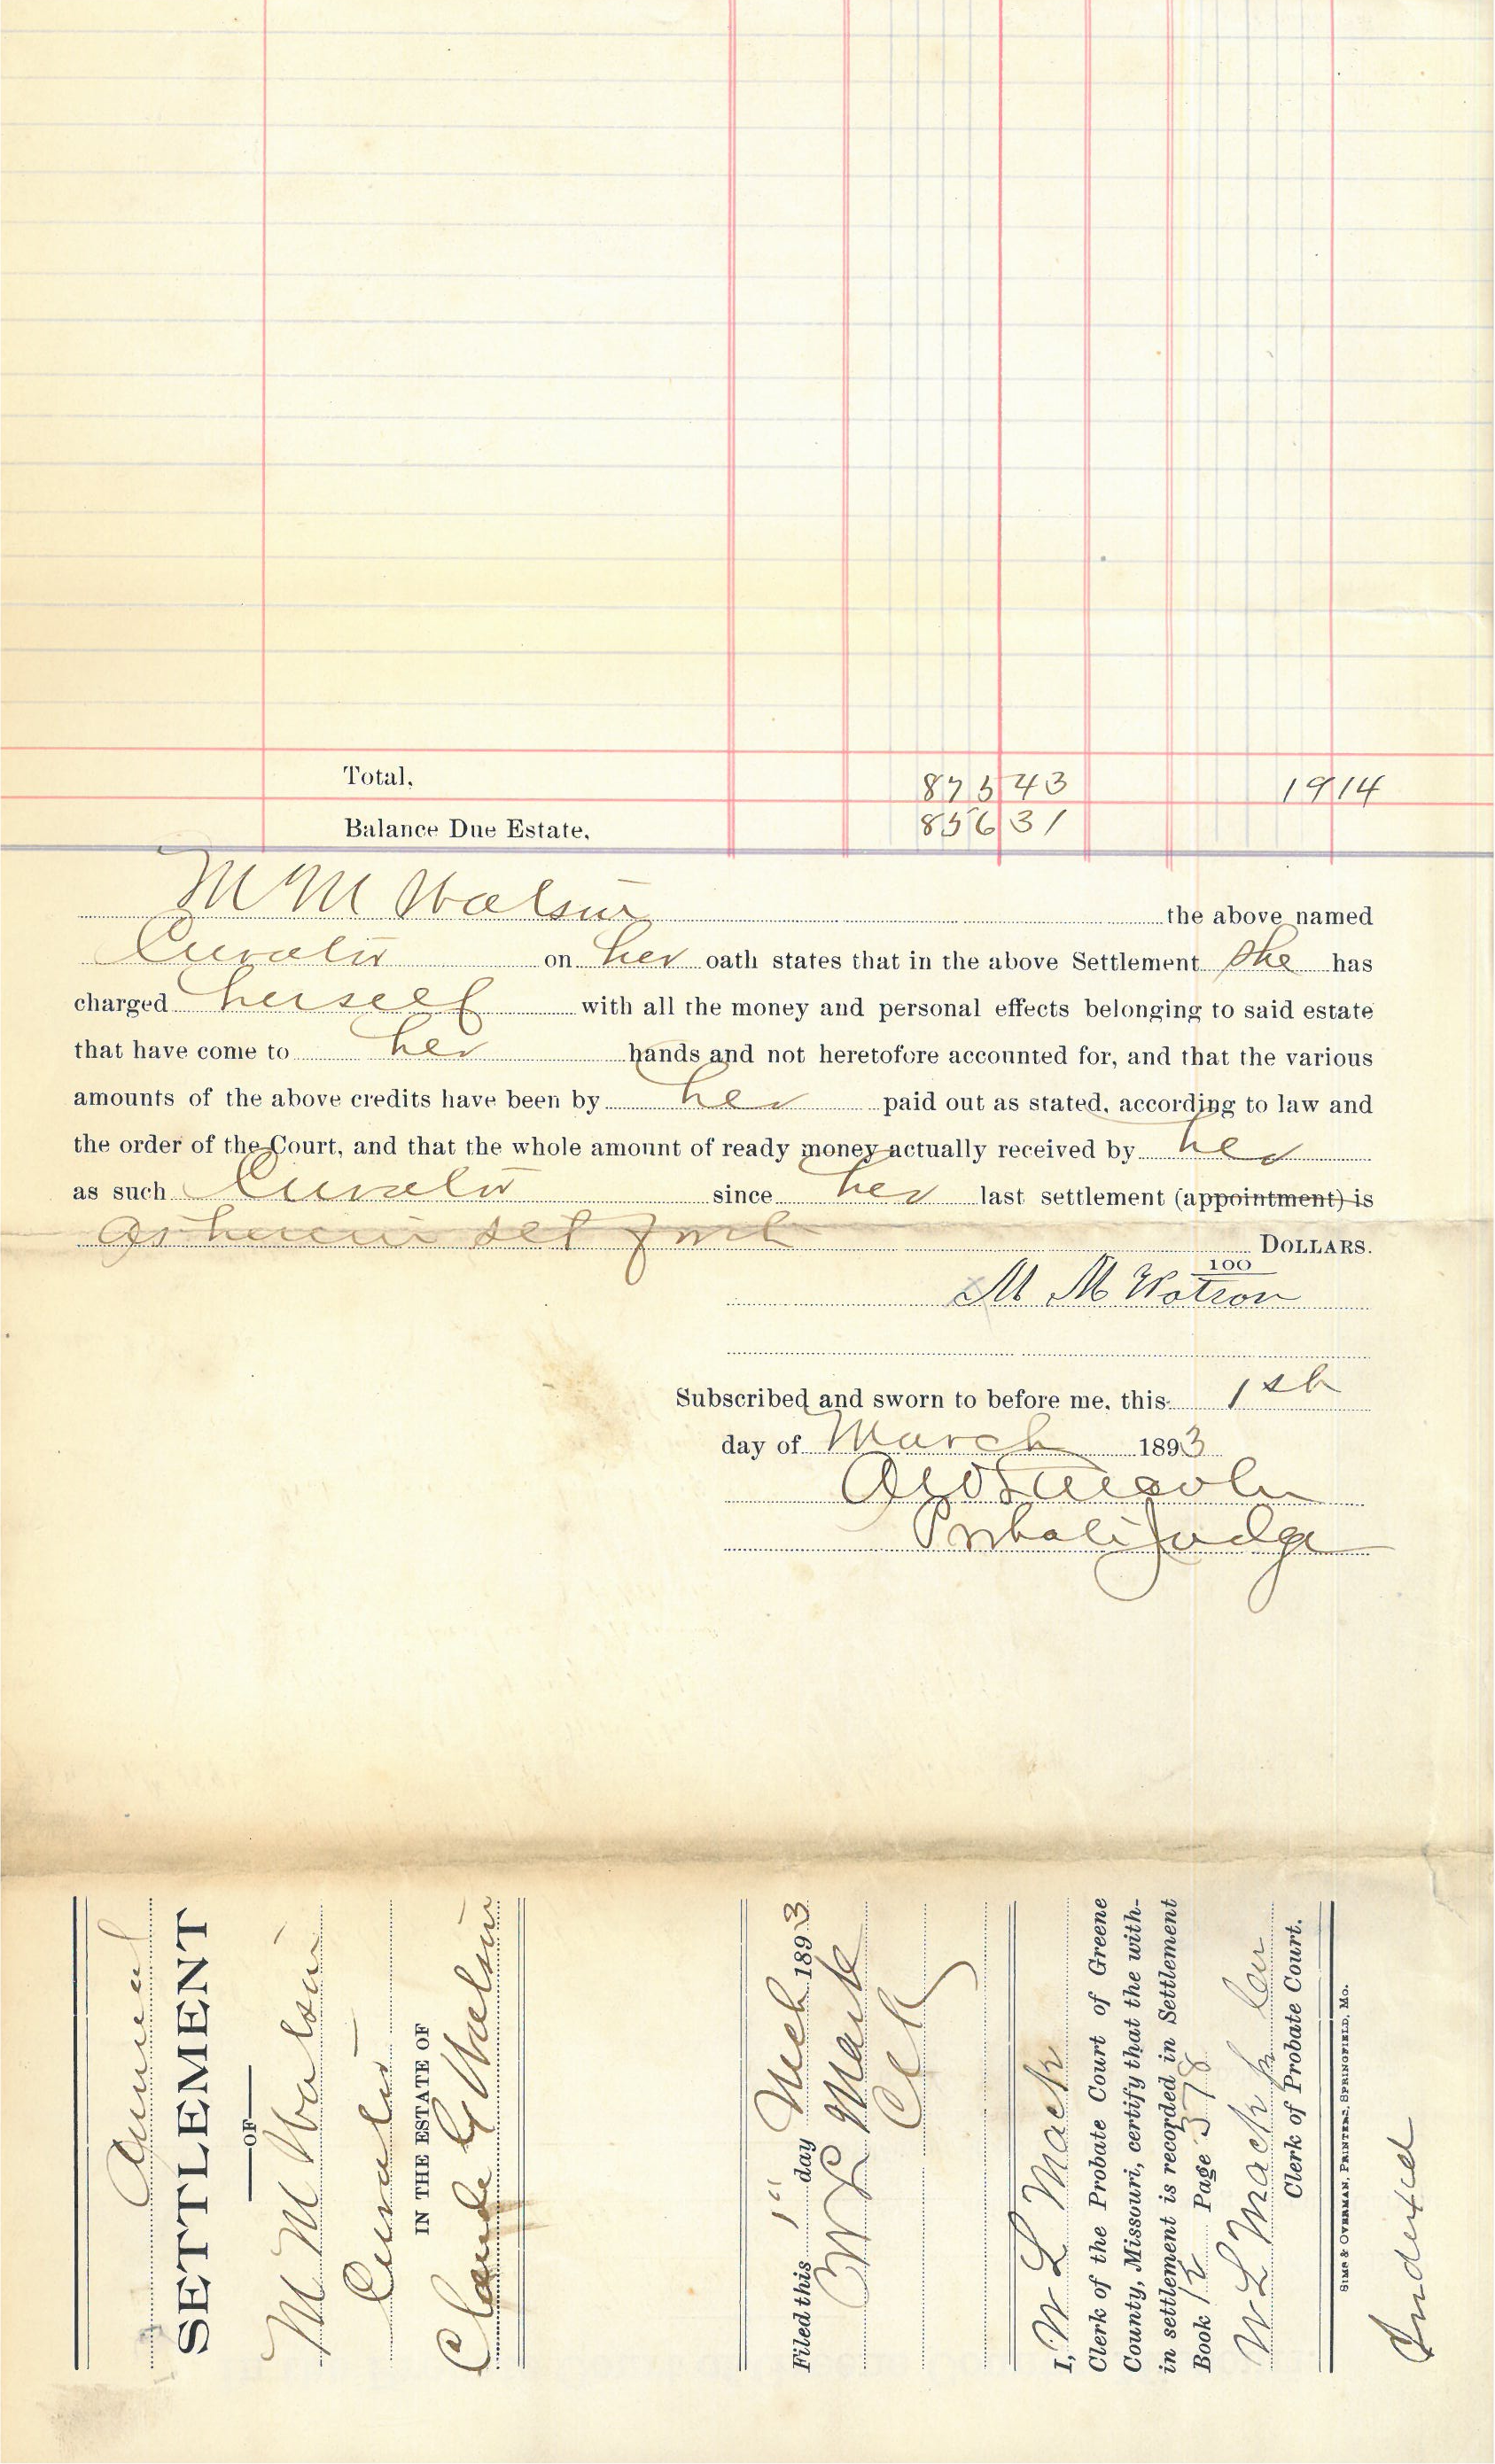 Total, 875 43 19 14
Balance Due Estate, 856 31
M M Watson the above named
Curator on her oath states that in the above Settlement She has
charged herself with all the money and personal effects belonging to said estate
that have come to her hands and not heretofore accounted for, and that the various
amounts of the above credits have been by her paid out as stated, according to law and
the order of the Court, and that the whole amount of ready money actually received by her
as such Curator since her last settlement (appointment) is
as herein set forth DOLLARS.
100
M M Watson
Subscribed and sworn to before me, this 1st
day of March 1893
Probate Judge
Annual
SETTLEMENT
OF
M M Watson
Curator
IN THE ESTATE OF
Claude G Watson
Filed this 1st day Mch 1893
W L Mack
Clk
I, W L Mack
Clerk of the Probate Court of Greene
County, Missouri, certify that the with-
in settlement is recorded in Settlement
Book 12 Page 378
W L Mack
Clerk of Probate Court.
SIMS & OVERMAN, PRINTERS, SPRINGFIELD, MO.
Indexed